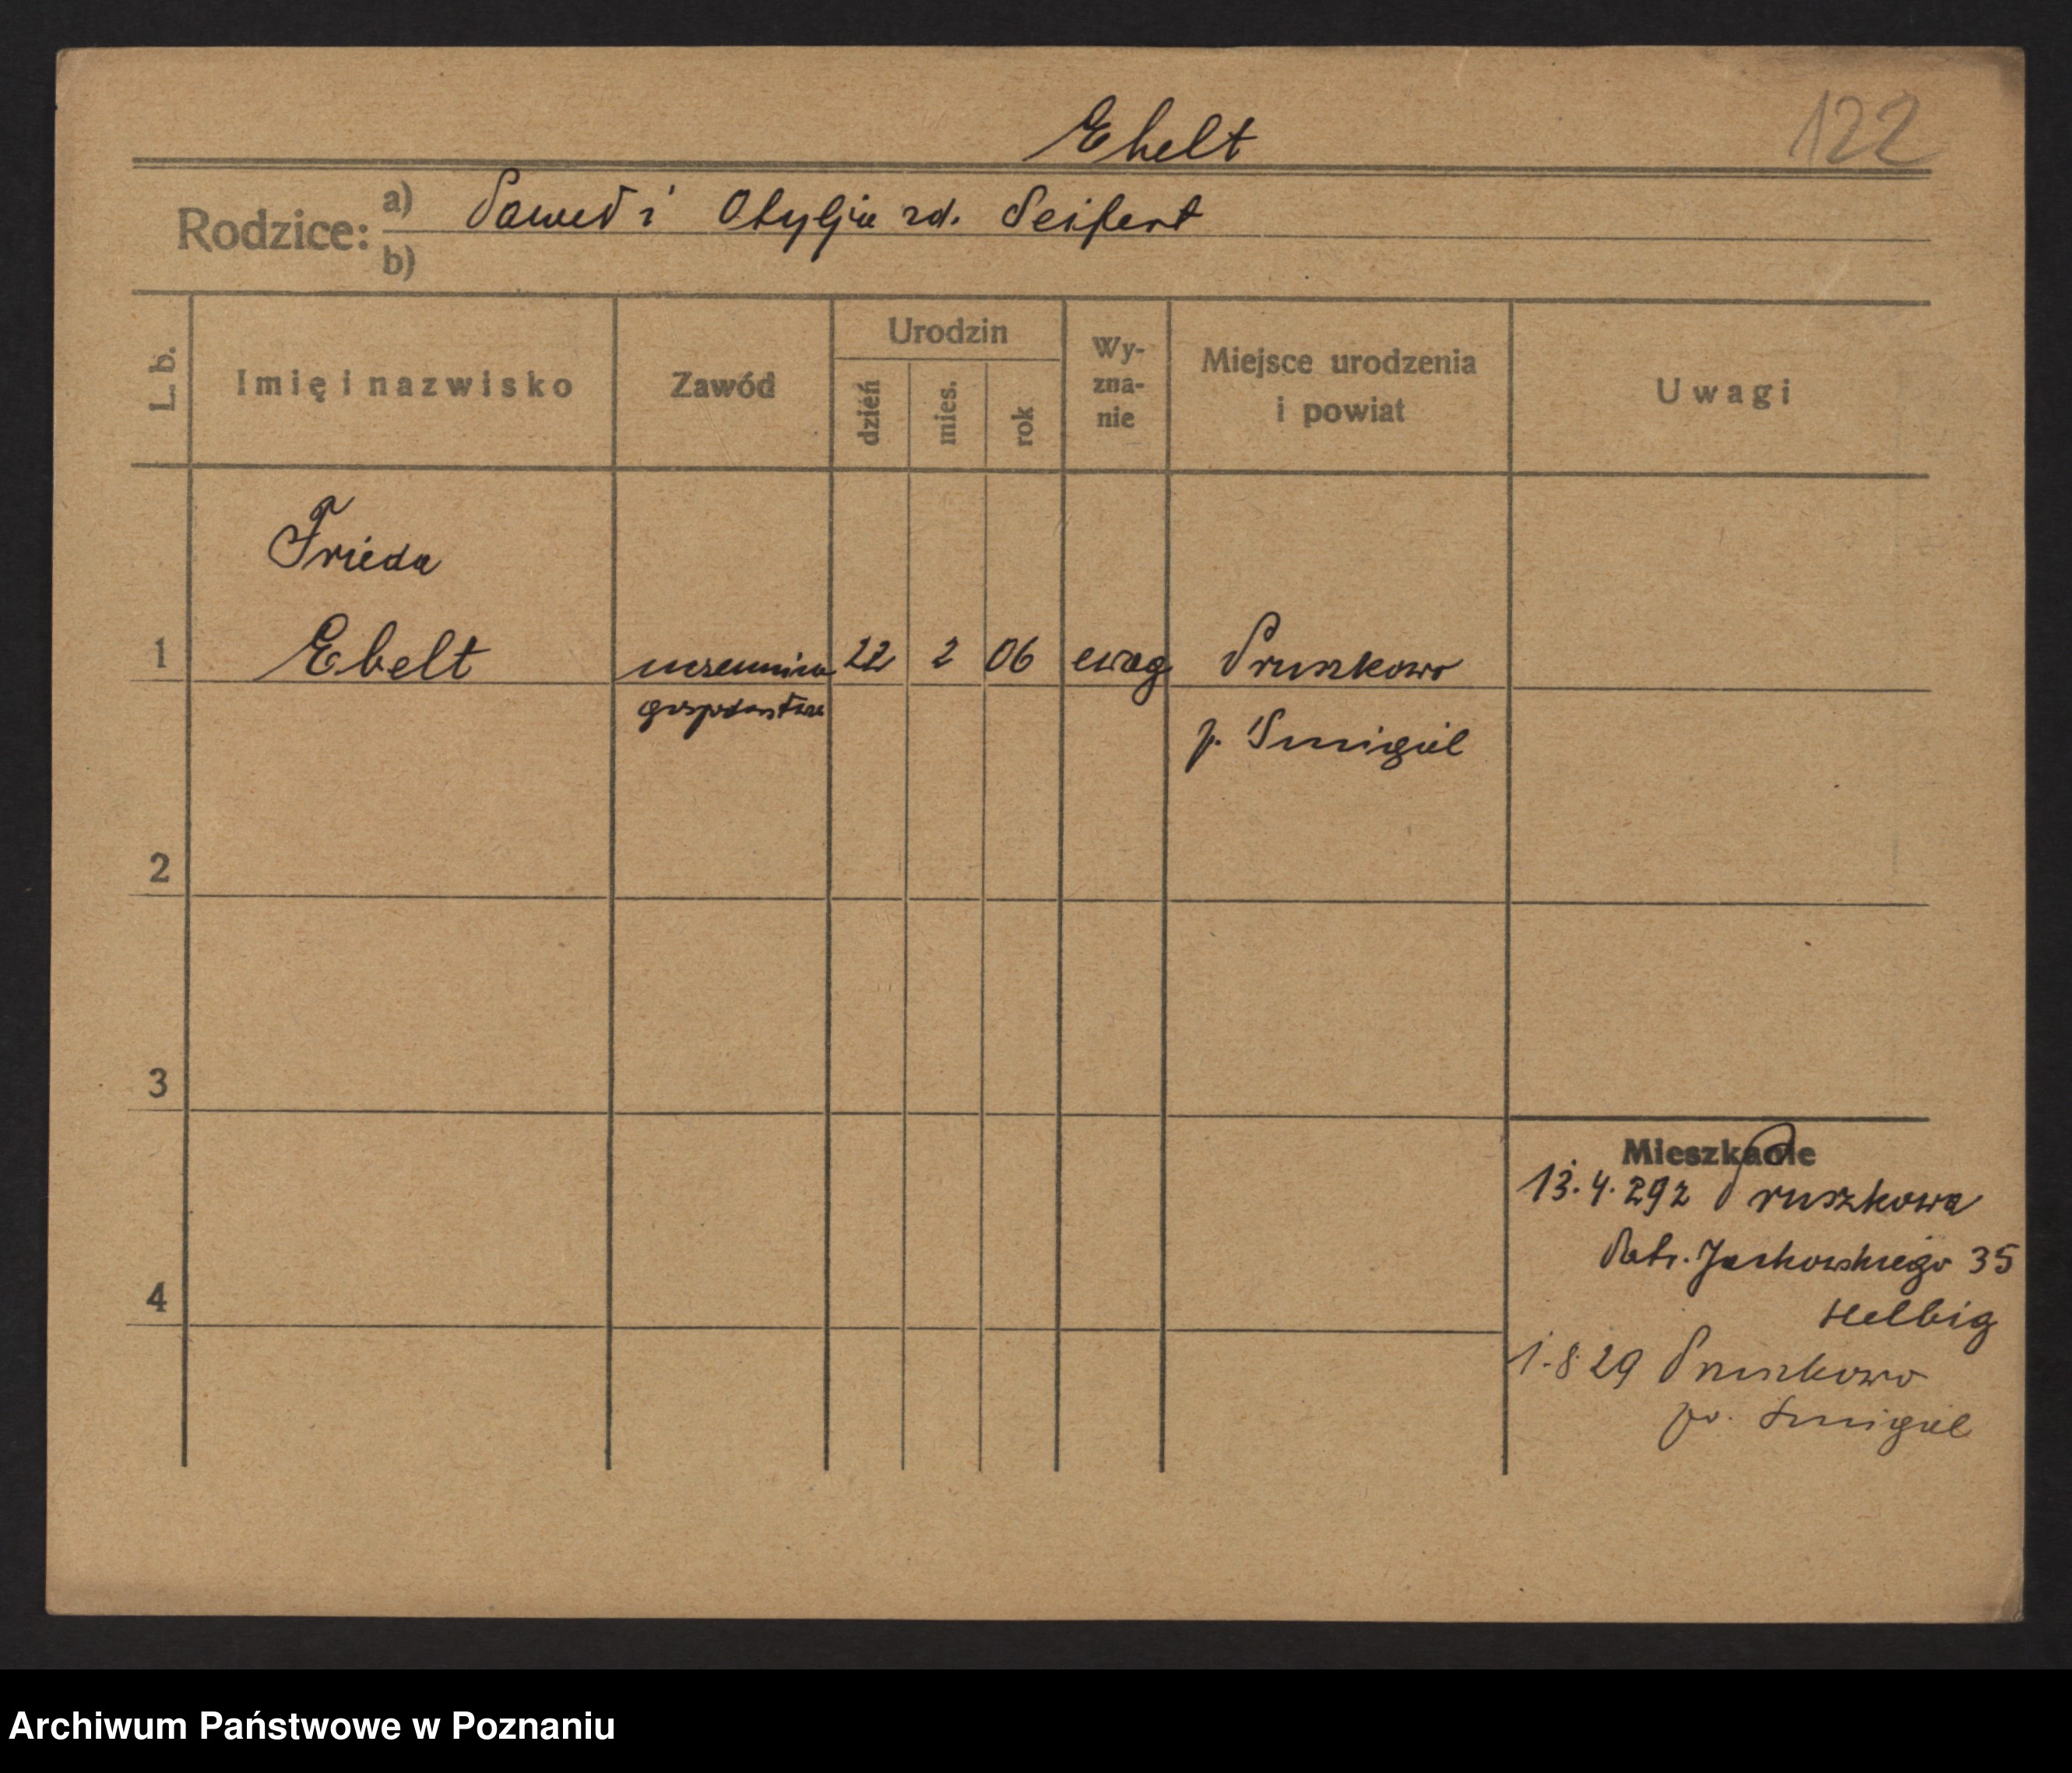 Ebelt
122
Rodzice: a) Paweł i Otylja rd. Seifert
b)
L. b. Imię i nazwisko Zawód Urodzin dzień mies. rok Wy-zna-nie Miejsce urodzenia i powiat Uwagi
Frieda
1 Ebelt uczennica 22 2 06 ewag Pruszkowo
gospodarstwa p. Śmigiel
2
3
Mieszkanie
13.4.29 z Pruszkowa
Patr. Jackowskiego 35
4
Helbig
1.8.29 Pruszkowo
pow. Śmigiel
Archiwum Państwowe w Poznaniu